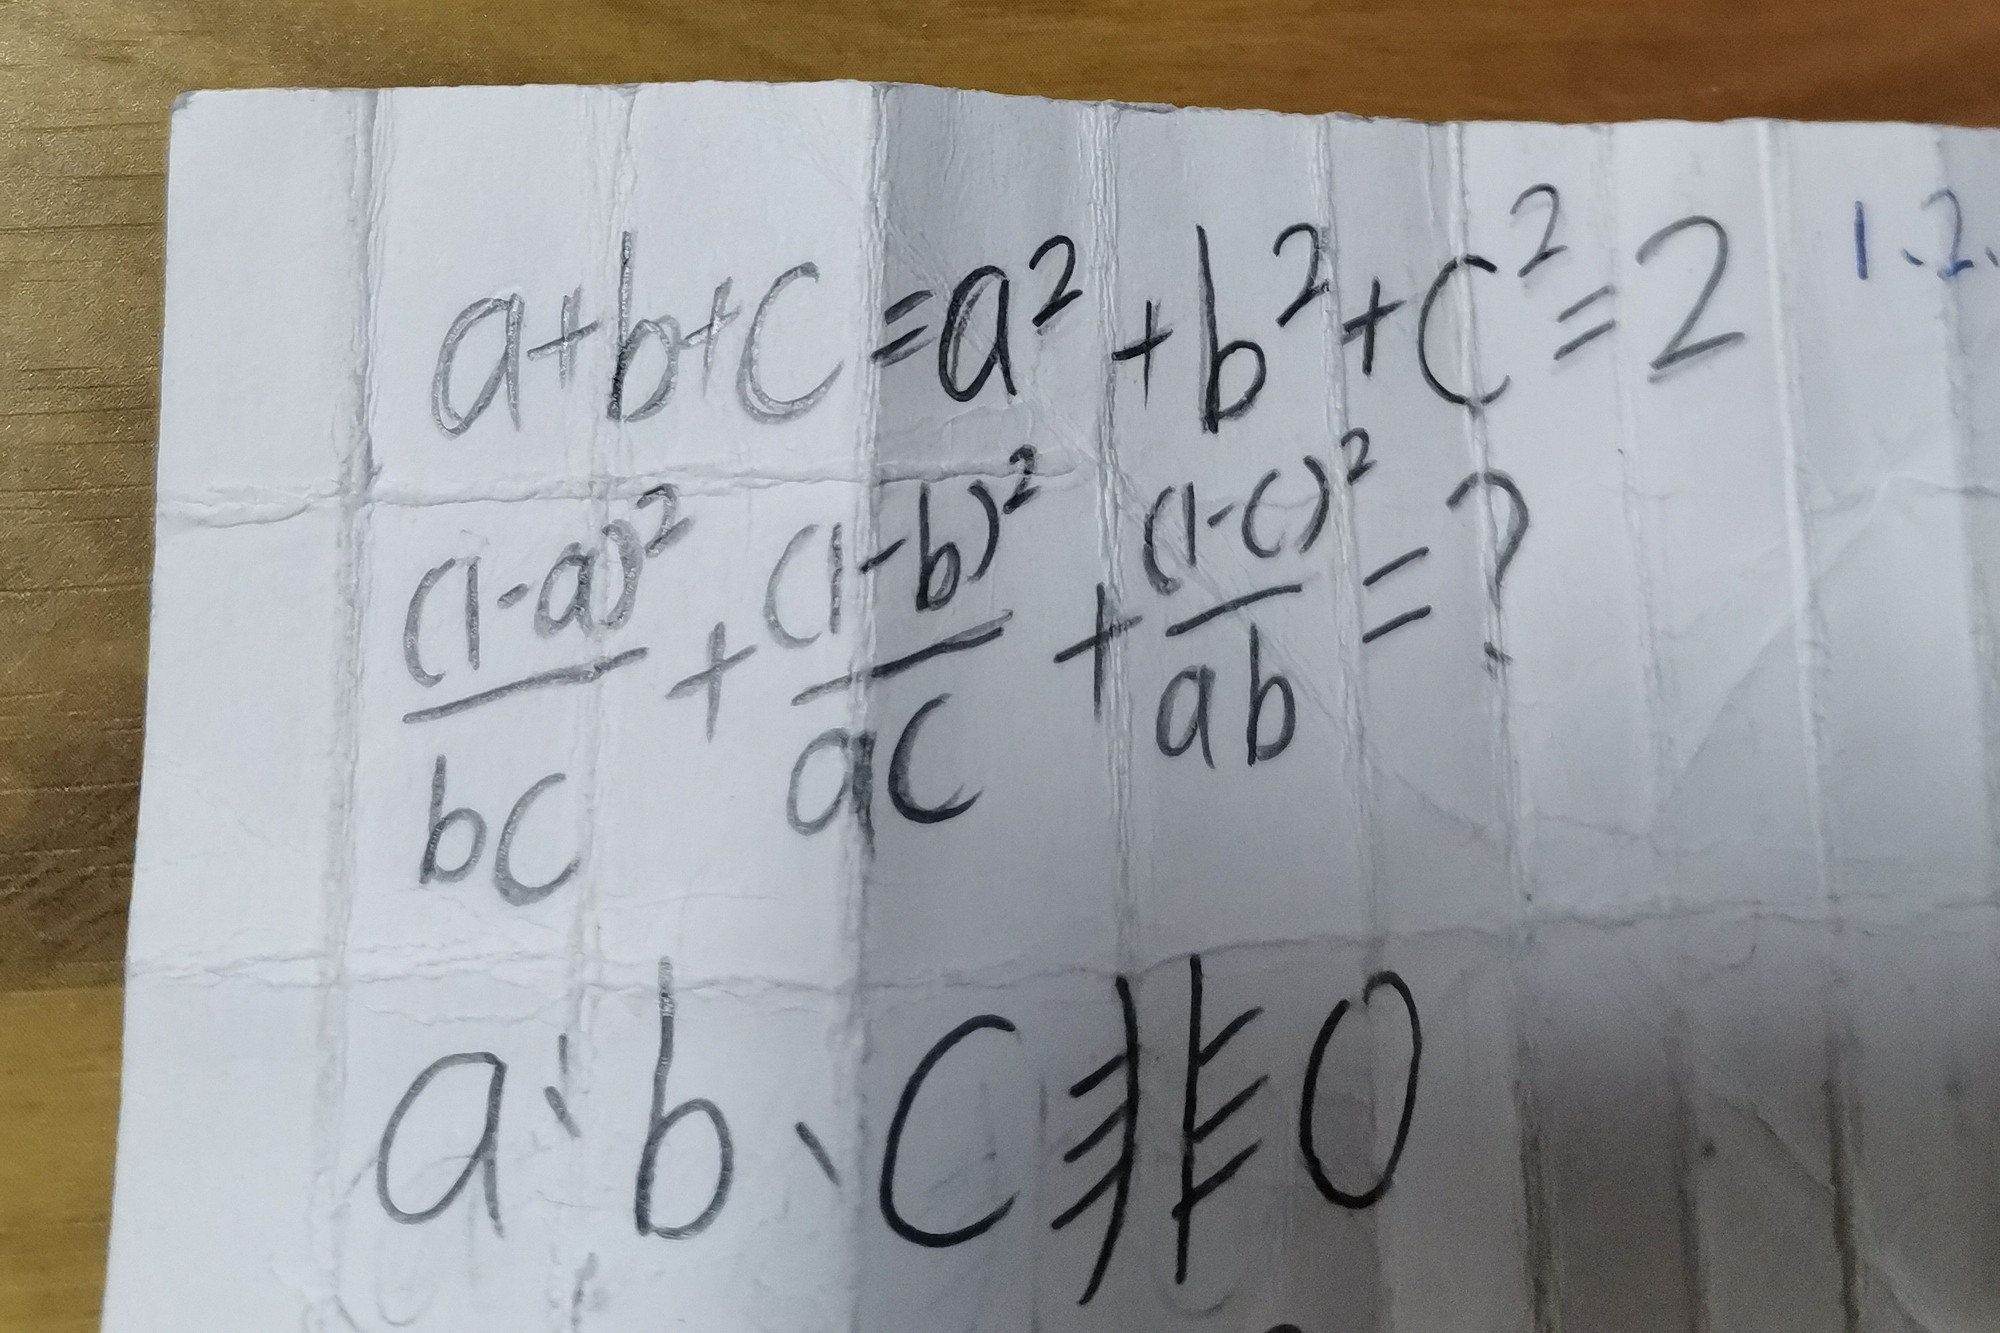 a+b+c=a²+b²+c²=2 1.2.
(1-a)²/bc + (1-b)²/ac + (1-c)²/ab = ?
a、b、c非0